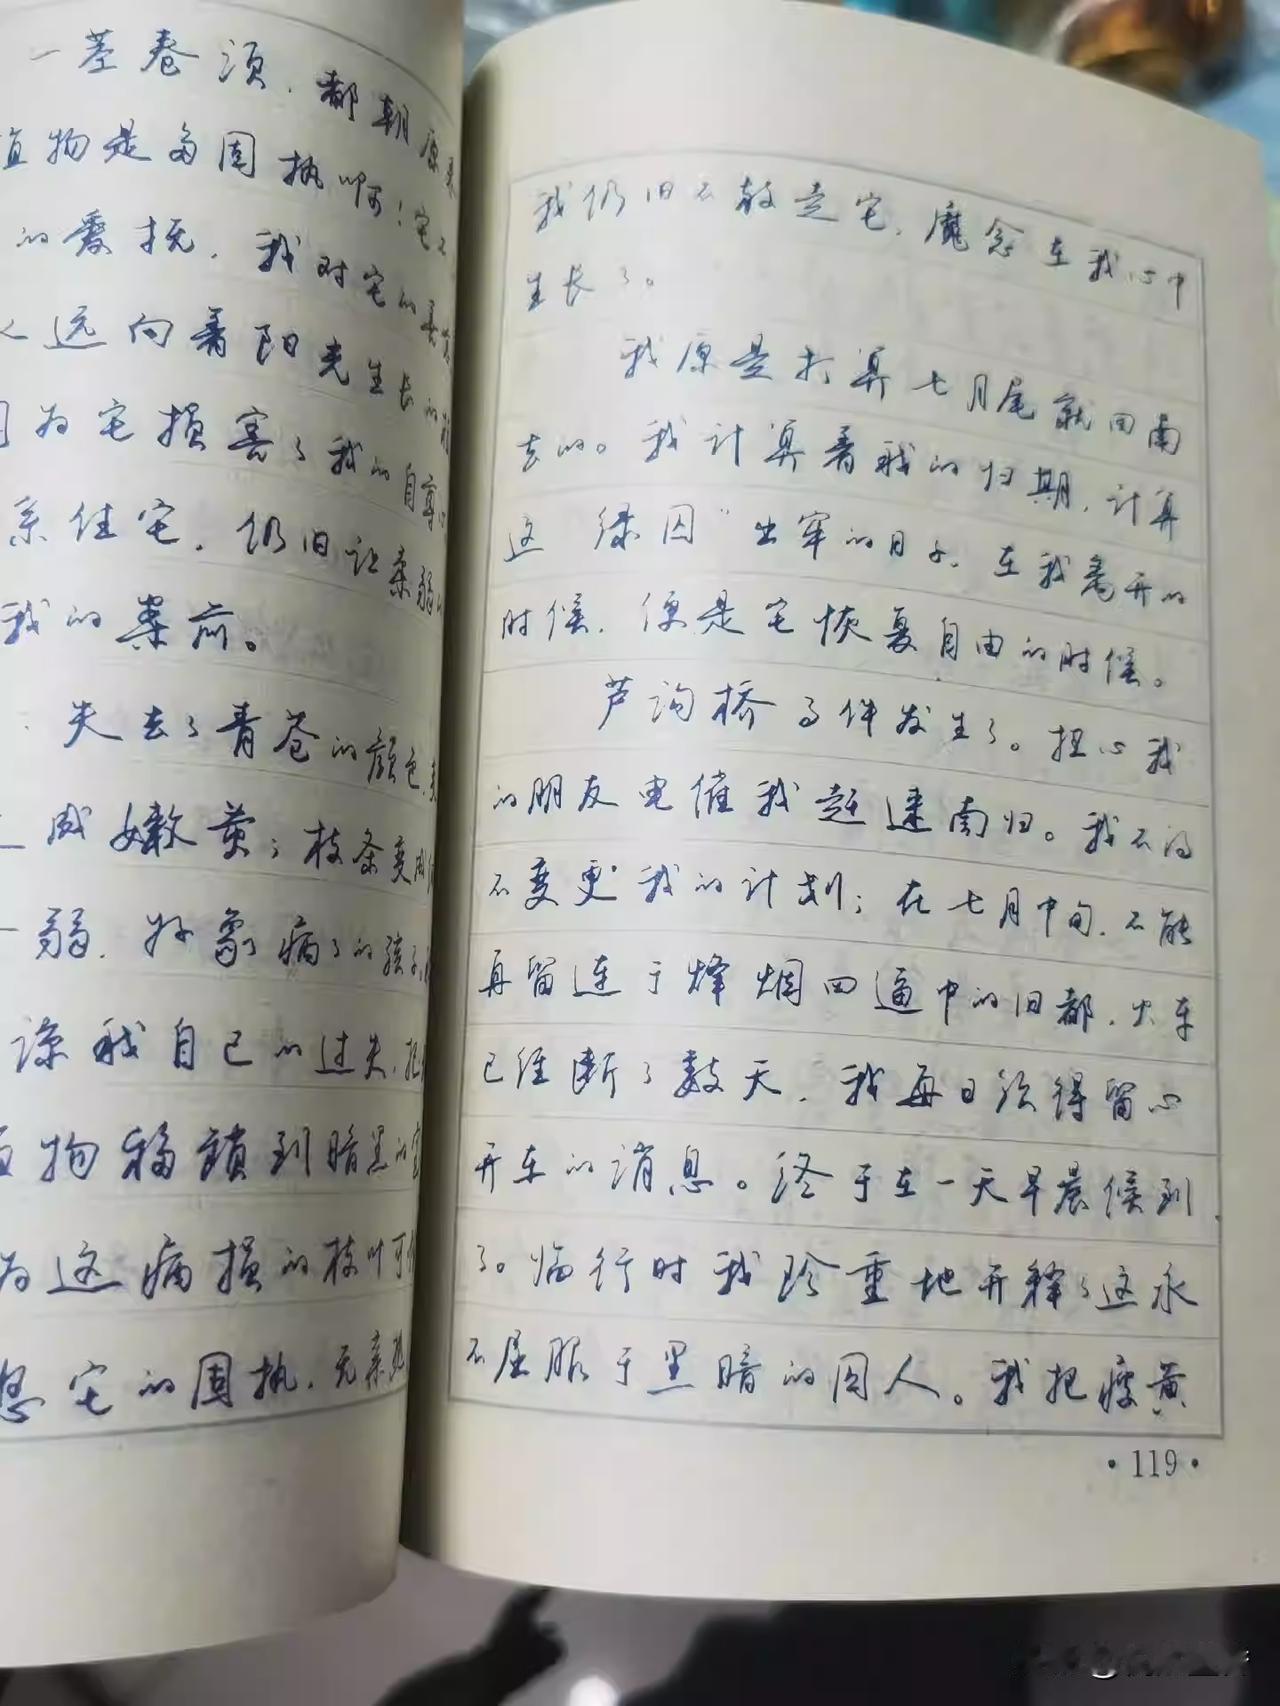 一茎卷须，都朝原来
植物是多固执啊！它不
的爱抚，我对它的善意
远向着阳光生长的
因为它损害了我的自尊心
系住它，仍旧让柔弱的
我的案前。
失去了青苍的颜色，
成嫩黄；枝条变成
弱，好象病了的孩子，
谅我自己的过失，把
植物移锁到暗黑的室
为这病损的枝叶可怜
恕它的固执，无亲热
我仍旧不放走它，魔念在我心中
生长了。
我原是打算七月尾就回南
去的。我计算着我的归期，计算
这"绿囚"出牢的日子，在我离开的
时候，便是它恢复自由的时候。
芦沟桥事件发生了。担心我
的朋友电催我赶速南归。我不得
不变更我的计划；在七月中旬，不能
再留连于烽烟四逼中的旧都，火车
已经断了数天，我每日须得留心
开车的消息。终于在一天早晨候到
了。临行时我珍重地开释了这永
不屈服于黑暗的囚人。我把瘦黄
·119·